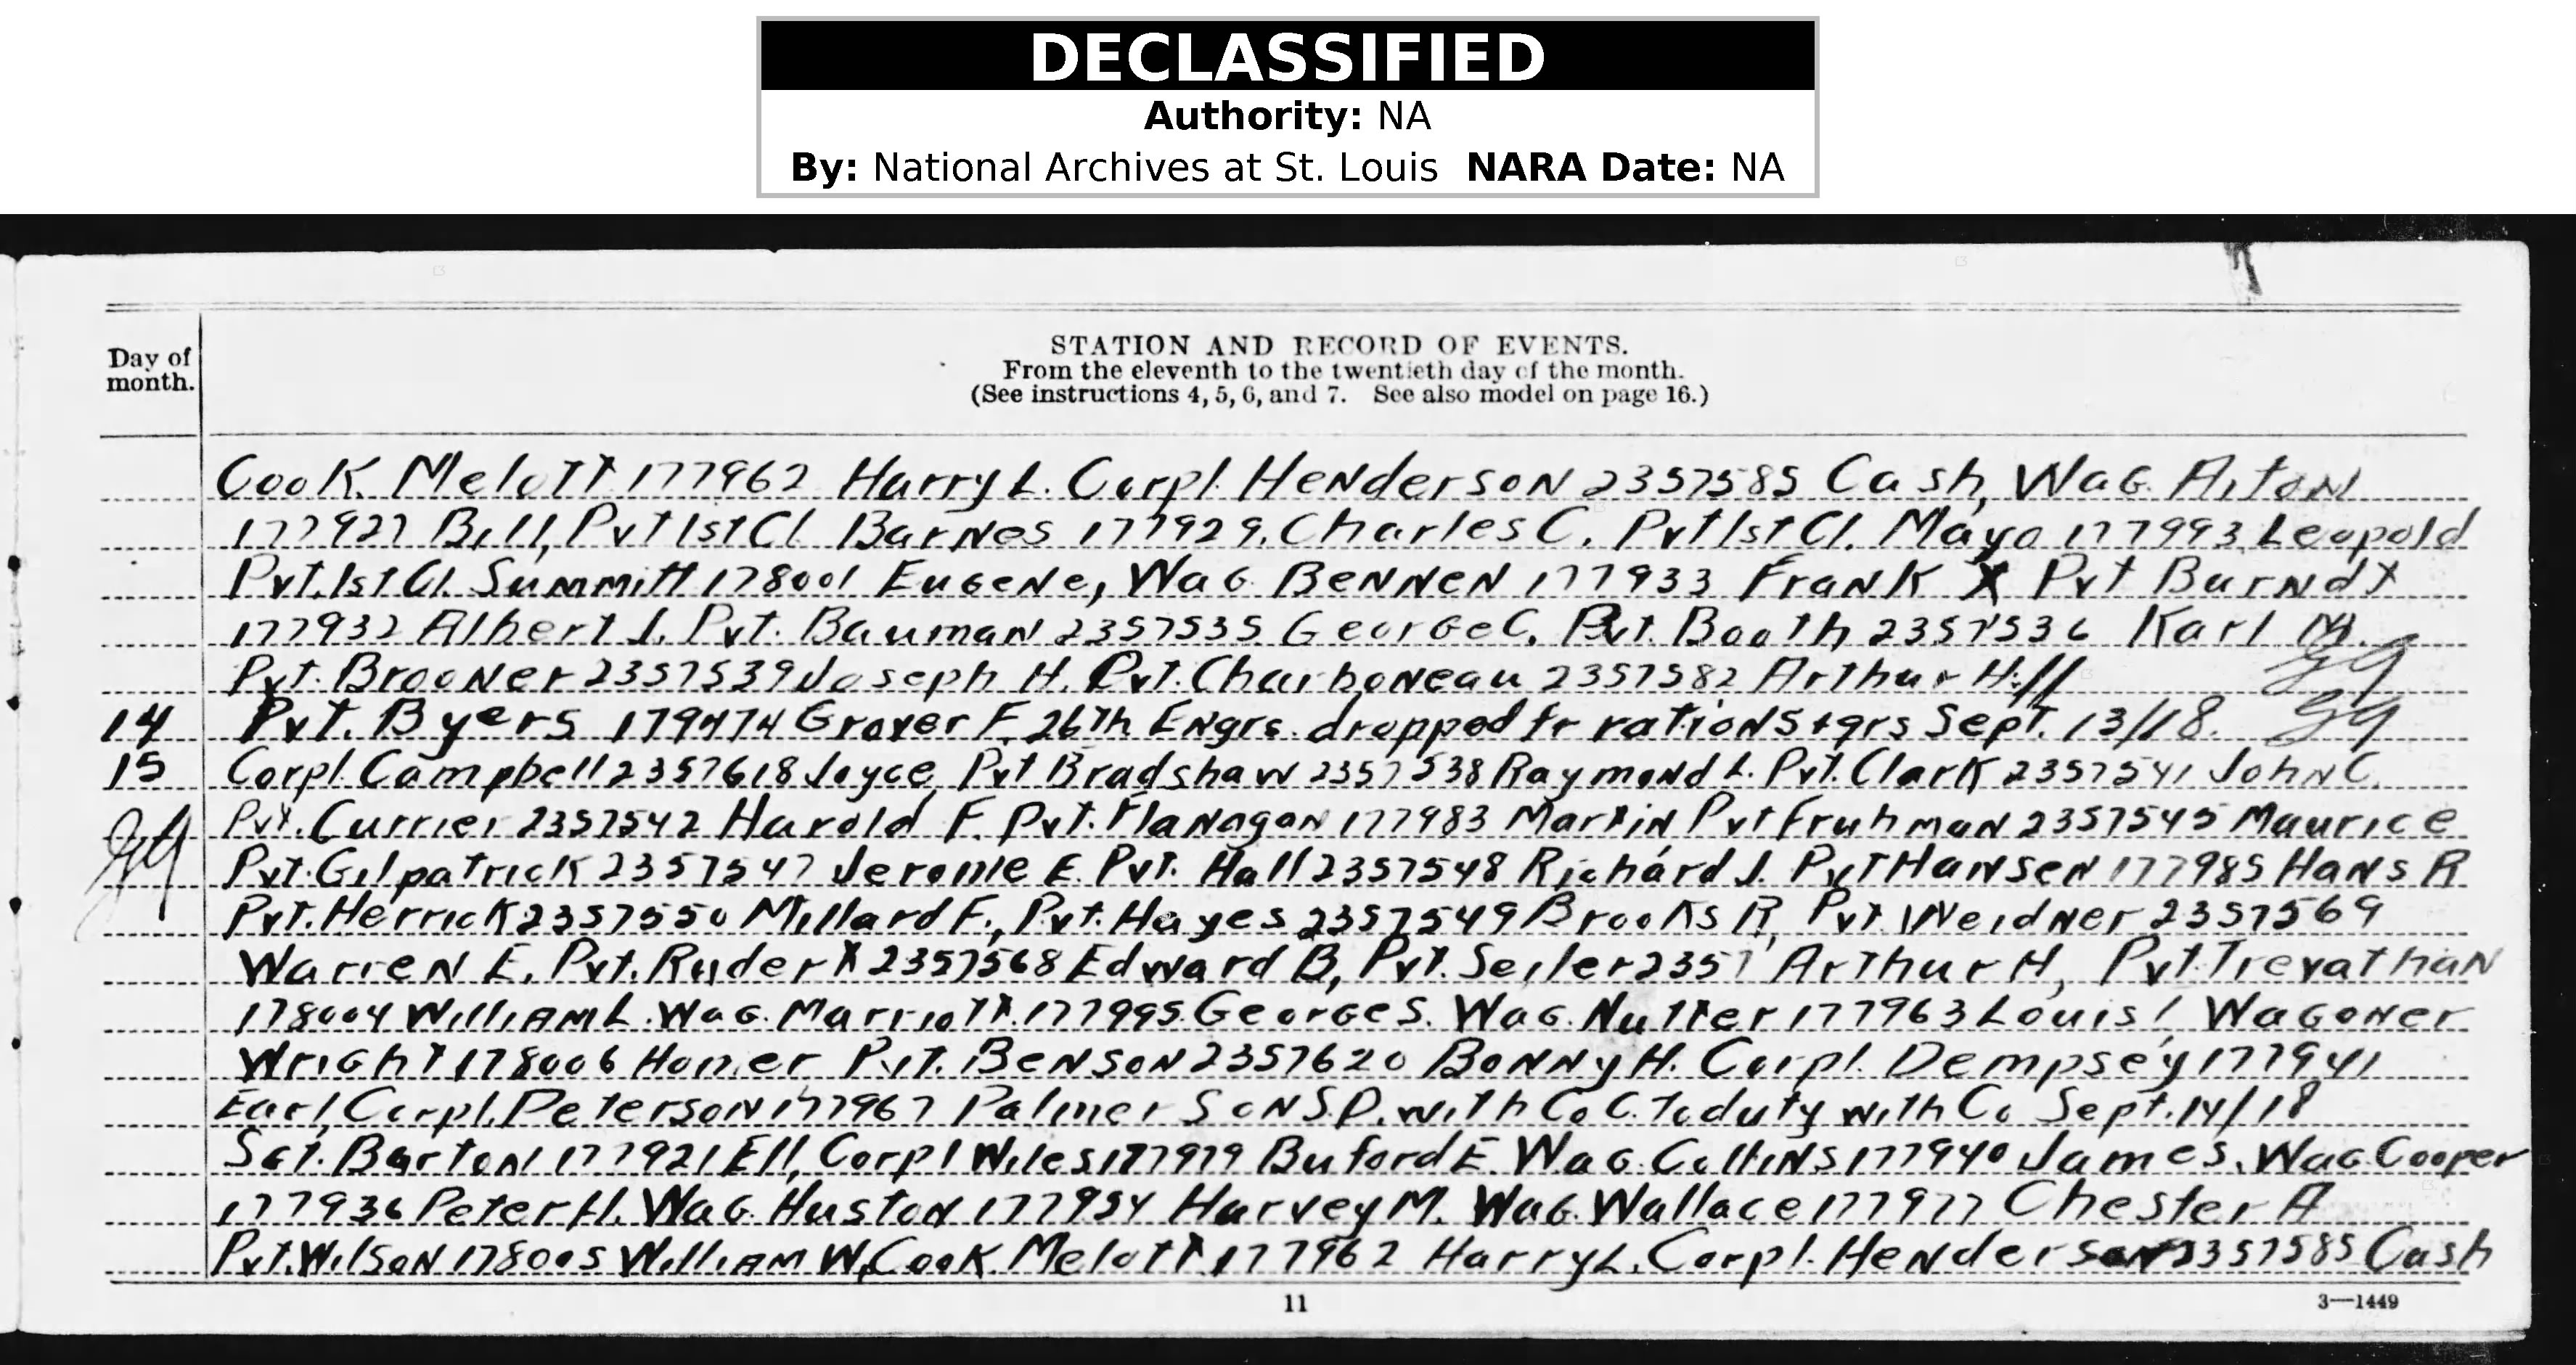 DECLASSIFIED
Authority: NA
By: National Archives at St. Louis NARA Date: NA
Day of month.
STATION AND RECORD OF EVENTS.
From the eleventh to the twentieth day of the month.
(See instructions 4, 5, 6, and 7. See also model on page 16.)
Cook Melott 177962 Harry L. Corpl. Henderson 2357585 Cash, Wag. Aiton
177927 Bill, Pvt 1st Cl. Barnes 177929, Charles C. Pvt 1st Cl. Mayo 177993 Leopold
Pvt. 1st Cl. Summitt 178001 Eugene, Wag. Bennen 177933 Frank X Pvt Burndt
177932 Albert J. Pvt. Bauman 2357535 George C. Pvt. Booth 2357536 Karl M.
Pvt. Brooner 2357539 Joseph H. Pvt. Charboneau 2357582 Arthur H.//
14 Pvt. Byers 179474 Grover F. 26th Engrs. dropped fr rations + qrs Sept. 13/18.
15 Corpl. Campbell 2357618 Joyce, Pvt Bradshaw 2357538 Raymond L. Pvt. Clark 2357541 John C.
Pvt. Currier 2357542 Harold F. Pvt. Flanagan 177983 Martin Pvt Fruhman 2357545 Maurice
Pvt. Gilpatrick 2357547 Jerome E. Pvt. Hall 2357548 Richard J. Pvt Hansen 177985 Hans R
Pvt. Herrick 2357550 Millard F., Pvt. Hayes 2357549 Brooks R, Pvt. Weidner 2357569
Warren E, Pvt. Rudert 2357568 Edward B, Pvt. Seiler 2357 Arthur H, Pvt. Trevathan
178004 William L. Wag. Marriott 177995 George S. Wag. Nutter 177963 Louis I Wagoner
Wright 178006 Homer Pvt. Benson 2357620 Bonny H. Corpl. Dempsey 177941
Earl, Corpl. Peterson 177967 Palmer S on S.D. with Co C. To duty with Co Sept. 14/18
Sgt. Barton 177921 Ell, Corpl Wiles 177979 Buford E. Wag. Collins 177940 James, Wag Cooper
177936 Peter H. Wag. Huston 177954 Harvey M. Wag. Wallace 177977 Chester A
Pvt. Wilson 178005 William W, Cook Melott 177962 Harry L. Corpl. Henderson 2357585 Cash
11
3—1449